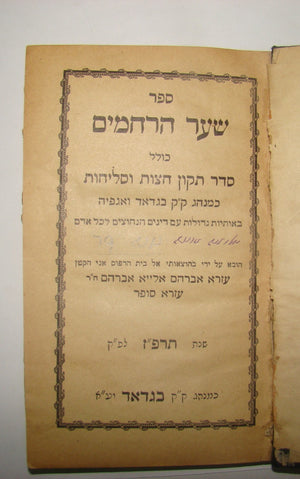 ספר
שער הרחמים
כולל
סדר תקון חצות וסליחות
כמנהג ק״ק בגדאד ואגפיה
באותיות גדולות עם דינים הנחוצים לכל אדם
הובא על ידי בהוצאותי אל בית הדפוס אני הקטן
עזרא אברהם אליא אברהם ח״ר
עזרא סופר
שנת תרפ״ז לפ״ק
כמנהג ק״ק בגדאד יע״א